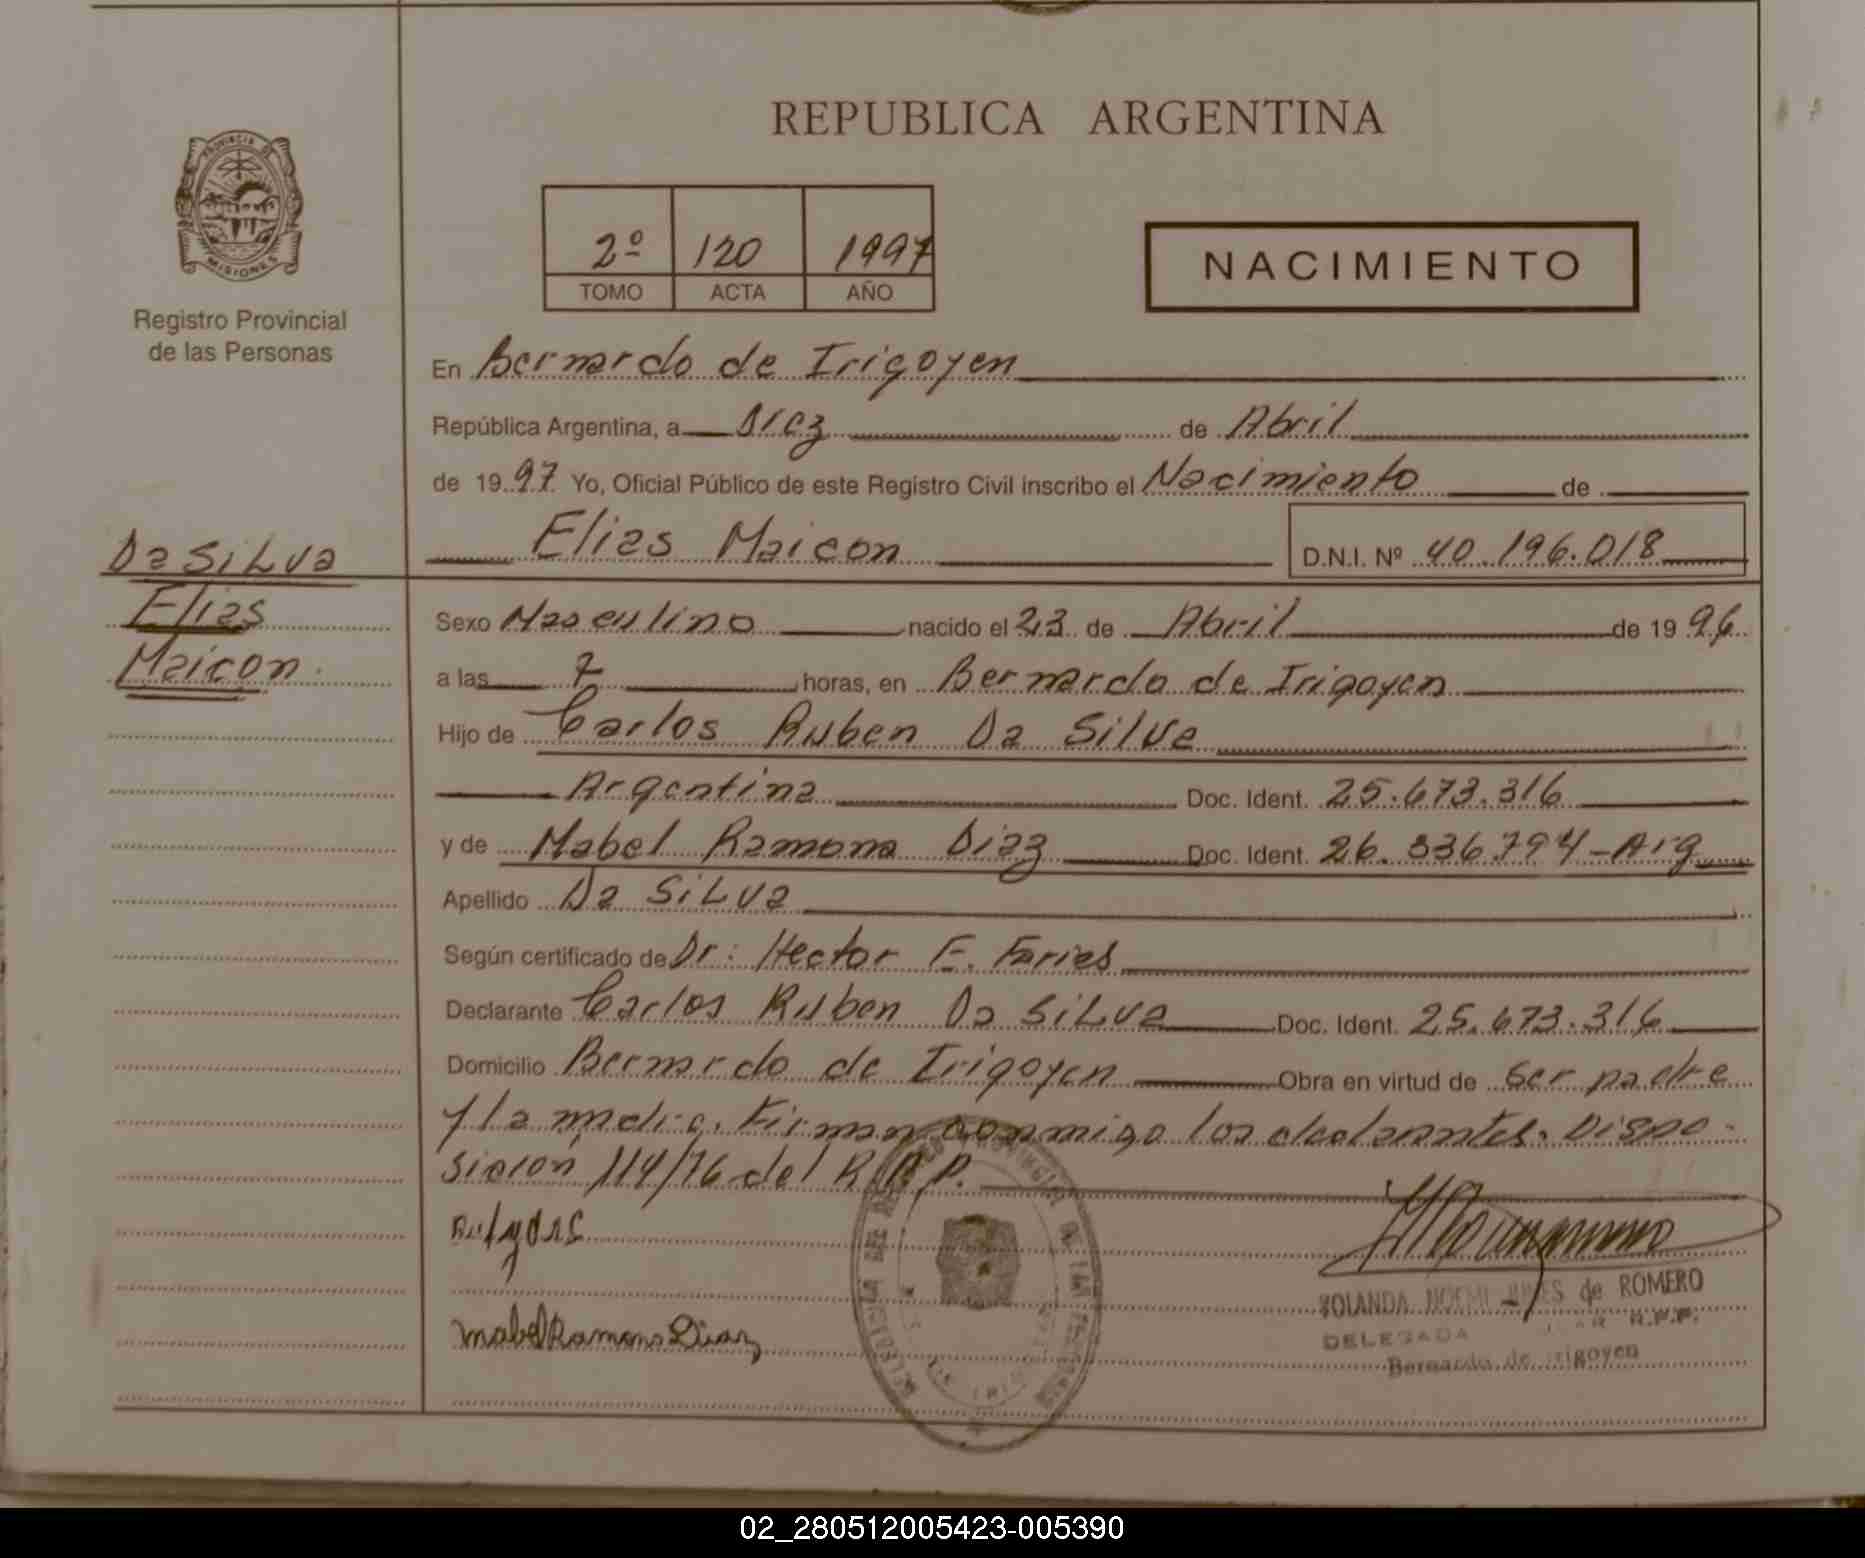 REPUBLICA ARGENTINA
PROVINCIA DE
MISIONES
Registro Provincial
de las Personas
2º 120 1997
TOMO ACTA AÑO
NACIMIENTO
En Bernardo de Irigoyen
República Argentina, a Diez de Abril
de 1997 Yo, Oficial Público de este Registro Civil inscribo el Nacimiento de
Elias Maicon D.N.I. Nº 40.196.018
Da SiLva
Elias
Maicon
Sexo Masculino nacido el 23 de Abril de 1996
a las 7 horas, en Bernardo de Irigoyen
Hijo de Carlos Ruben Da Silva
Argentina Doc. Ident. 25.673.316
y de Mabel Ramona Diaz Doc. Ident. 26.336.794-Arg
Apellido Da SiLva
Según certificado de Dr: Hector E. Farias
Declarante Carlos Ruben Da SiLva Doc. Ident. 25.673.316
Domicilio Bernardo de Irigoyen Obra en virtud de ser padre
y la madre. Firman conmigo los declarantes. Dispo-
sicion 114/76 del R.P.P.
Mabel Ramona Diaz
YOLANDA NOEMI de ROMERO
DELEGADA R.P.P.
Bernardo de Irigoyen
02_280512005423-005390